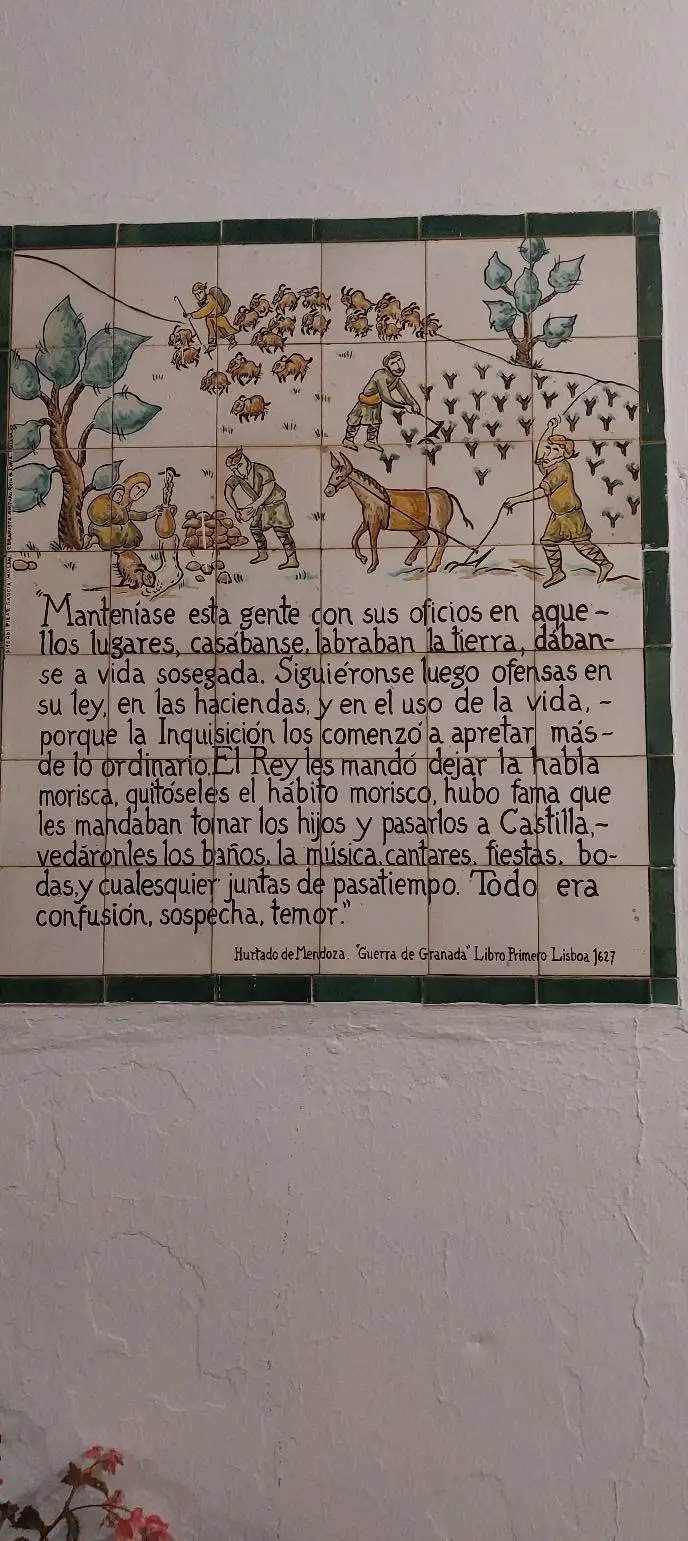 "Manteníase esta gente con sus oficios en aque-
llos lugares, casábanse, labraban la tierra, dában-
se a vida sosegada. Siguiéronse luego ofensas en
su ley, en las haciendas, y en el uso de la vida, -
porque la Inquisición los comenzó a apretar más-
de lo ordinario. El Rey les mandó dejar la habla
morisca, quitóseles el hábito morisco, hubo fama que
les mandaban tomar los hijos y pasarlos a Castilla,-
vedáronles los baños, la música, cantares, fiestas, bo-
das, y cualesquier juntas de pasatiempo. Todo era
confusión, sospecha, temor."
Hurtado de Mendoza. "Guerra de Granada" Libro Primero Lisboa 1627